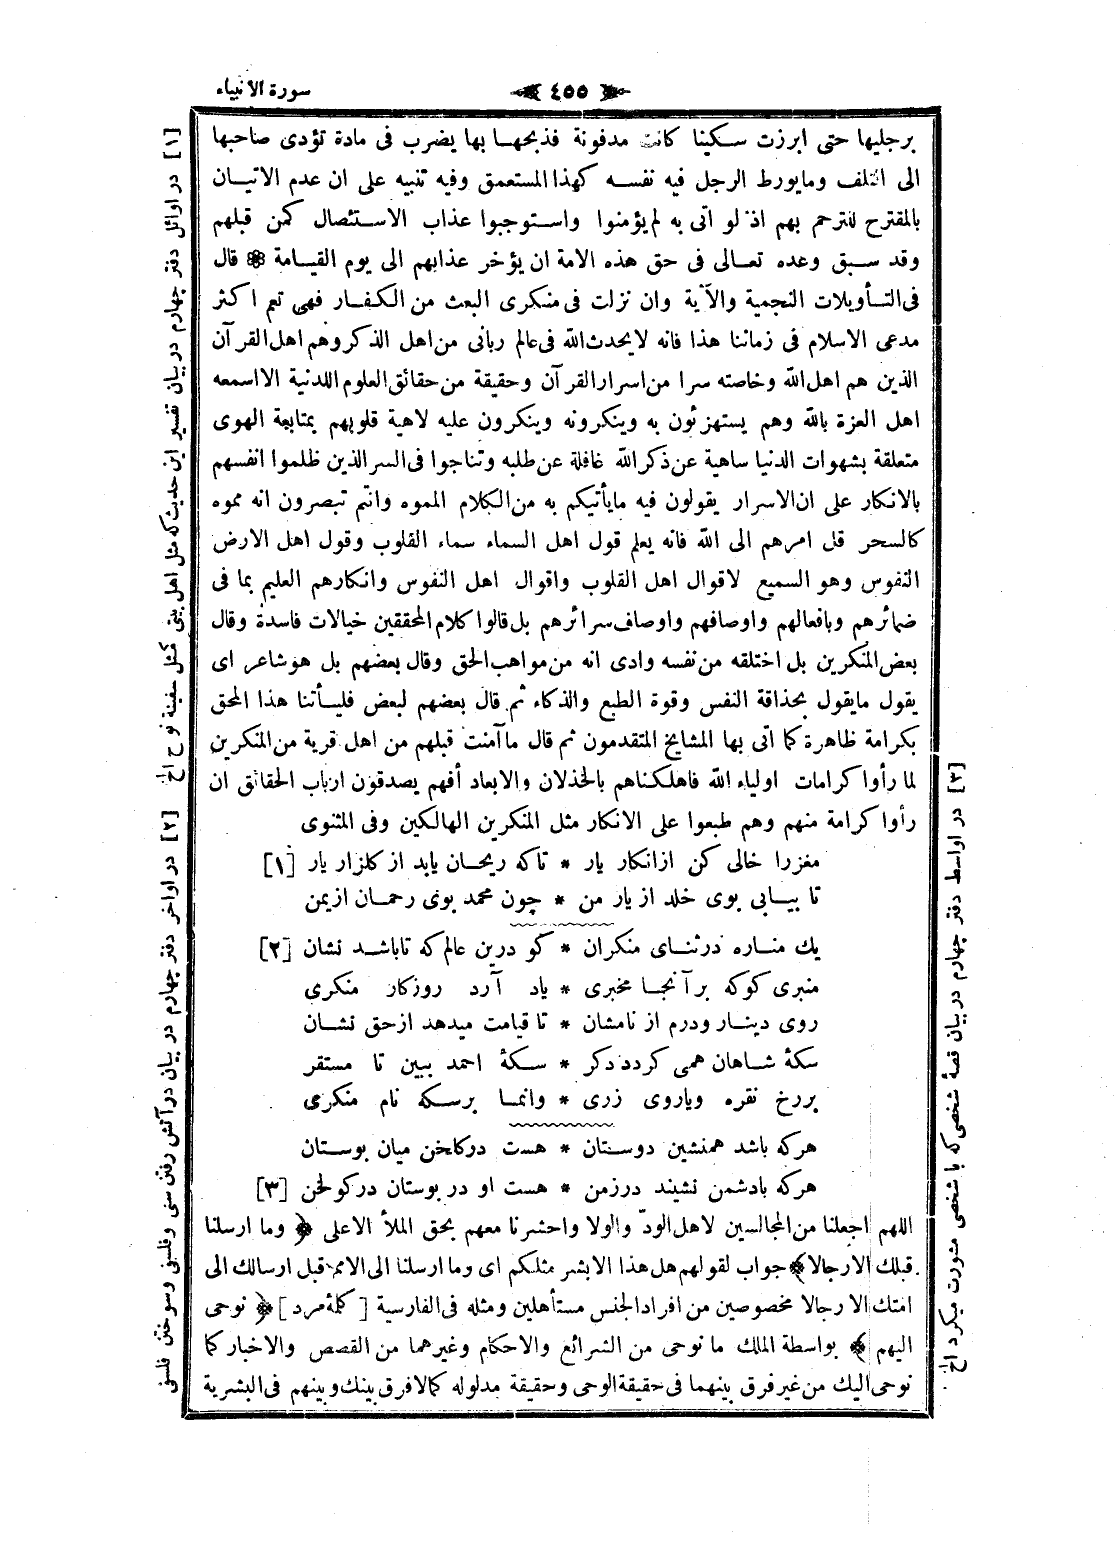 سورة الانبياء
﴿ ٤٥٥ ﴾
برجليها حتى ابرزت سكينا كانت مدفونة فذبحها بها يضرب فى مادة تؤدى صاحبها
الى التلف ومايورط الرجل فيه نفسه كهذا المستعمق وفيه تنبيه على ان عدم الاتيان
بالمقترح للترحم بهم اذ لو اتى به لم يؤمنوا واستوجبوا عذاب الاستئصال كمن قبلهم
وقد سبق وعده تعالى فى حق هذه الامة ان يؤخر عذابهم الى يوم القيامة ❁ قال
فى التأويلات النجمية والآية وان نزلت فى منكرى البعث من الكفار فهى تعم اكثر
مدعى الاسلام فى زماننا هذا فانه لايحدث الله فى عالم ربانى من اهل الذكر وهم اهل القرآن
الذين هم اهل الله وخاصته سرا من اسرار القرآن وحقيقة من حقائق العلوم اللدنية الااسمعه
اهل العزة بالله وهم يستهزئون به وينكرونه وينكرون عليه لاهية قلوبهم بمتابعة الهوى
متعلقة بشهوات الدنيا ساهية عن ذكر الله غافلة عن طلبه وتناجوا فى السر الذين ظلموا انفسهم
بالانكار على ان الاسرار يقولون فيه مايأتيكم به من الكلام المموه وانتم تبصرون انه مموه
كالسحر قل امرهم الى الله فانه يعلم قول اهل السماء سماء القلوب وقول اهل الارض
النفوس وهو السميع لاقوال اهل القلوب واقوال اهل النفوس وانكارهم العليم بما فى
ضمائرهم وبافعالهم واوصافهم واوصاف سرائرهم بل قالوا كلام المحققين خيالات فاسدة وقال
بعض المنكرين بل اختلقه من نفسه وادى انه من مواهب الحق وقال بعضهم بل هو شاعر اى
يقول مايقول بحذاقة النفس وقوة الطبع والذكاء ثم قال بعضهم لبعض فليأتنا هذا المحق
بكرامة ظاهرة كما اتى بها المشايخ المتقدمون ثم قال ما آمنت قبلهم من اهل قرية من المنكرين
لما رأوا كرامات اولياء الله فاهلكناهم بالخذلان والابعاد أفهم يصدقون ارباب الحقائق ان
رأوا كرامة منهم وهم طبعوا على الانكار مثل المنكرين الهالكين وفى المثنوى
مغزرا خالى كن ازانكار يار * تاكه ريحان يابد از كلزار يار [١]
تا بيابى بوى خلد از يار من * چون محمد بوى رحمان ازيمن
يك مناره درثناى منكران * كو درين عالم كه تاباشد نشان [٢]
منبرى كوكه برآنجا مخبرى * ياد آرد روزكار منكرى
روى دينار ودرم از نامشان * تا قيامت ميدهد ازحق نشان
سكۀ شاهان همى كردد دكر * سكۀ احمد ببين تا مستقر
بررخ نقره وياروى زرى * وانما برسكه نام منكرى
هركه باشد همنشين دوستان * هست دركلخن ميان بوستان
هركه بادشمن نشيند درزمن * هست او در بوستان دركولخن [٣]
اللهم اجعلنا من المجالسين لاهل الودّ والولا واحشرنا معهم بحق الملأ الاعلى ﴿ وما ارسلنا
قبلك الارجالا﴾ جواب لقولهم هل هذا الابشر مثلكم اى وما ارسلنا الى الامم قبل ارسالك الى
امتك الا رجالا مخصوصين من افراد الجنس مستأهلين ومثله فى الفارسية [ كلۀ مرد ] ﴿ نوحى
اليهم ﴾ بواسطة الملك ما نوحى من الشرائع والاحكام وغيرهما من القصص والاخبار كما
نوحى اليك من غير فرق بينهما فى حقيقة الوحى وحقيقة مدلوله كما لافرق بينك وبينهم فى البشرية
[١] در اوائل دفتر چهارم دربيان تفسير اين حديث كه مثل اهل بيتى كمثل سفينة نوح الخ
[٢] در اواخر دفتر چهارم در بيان درآتش رفتن سنى وفلسفى وسوختن فلسفى
[٣] در اواسط دفتر چهارم دربيان قصۀ شخصى كه با شخصى مشورت ميكرد الخ